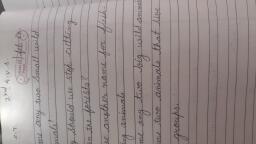 2nd E.V.S.
any two small wild
should we stop cutting
forests?
another name for fish
animals
any two big wild animals
two animals that live
groups.